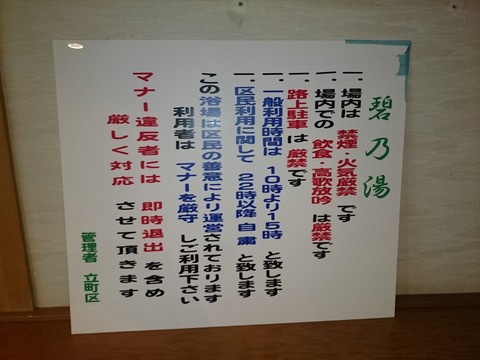 碧乃湯
一、場内は 禁煙・火気厳禁 です
一、場内での 飲食・高歌放吟 は厳禁です
一、路上駐車 は 厳禁です
一、一般利用時間は 10時より15時 と致します
一、区民利用に関して 22時以降 自粛 と致します
この浴場は区民の善意により運営されております
利用者は マナーを厳守 しご利用下さい
マナー違反者には 即時退出 を含め
厳しく対応 させて頂きます
管理者 立町区